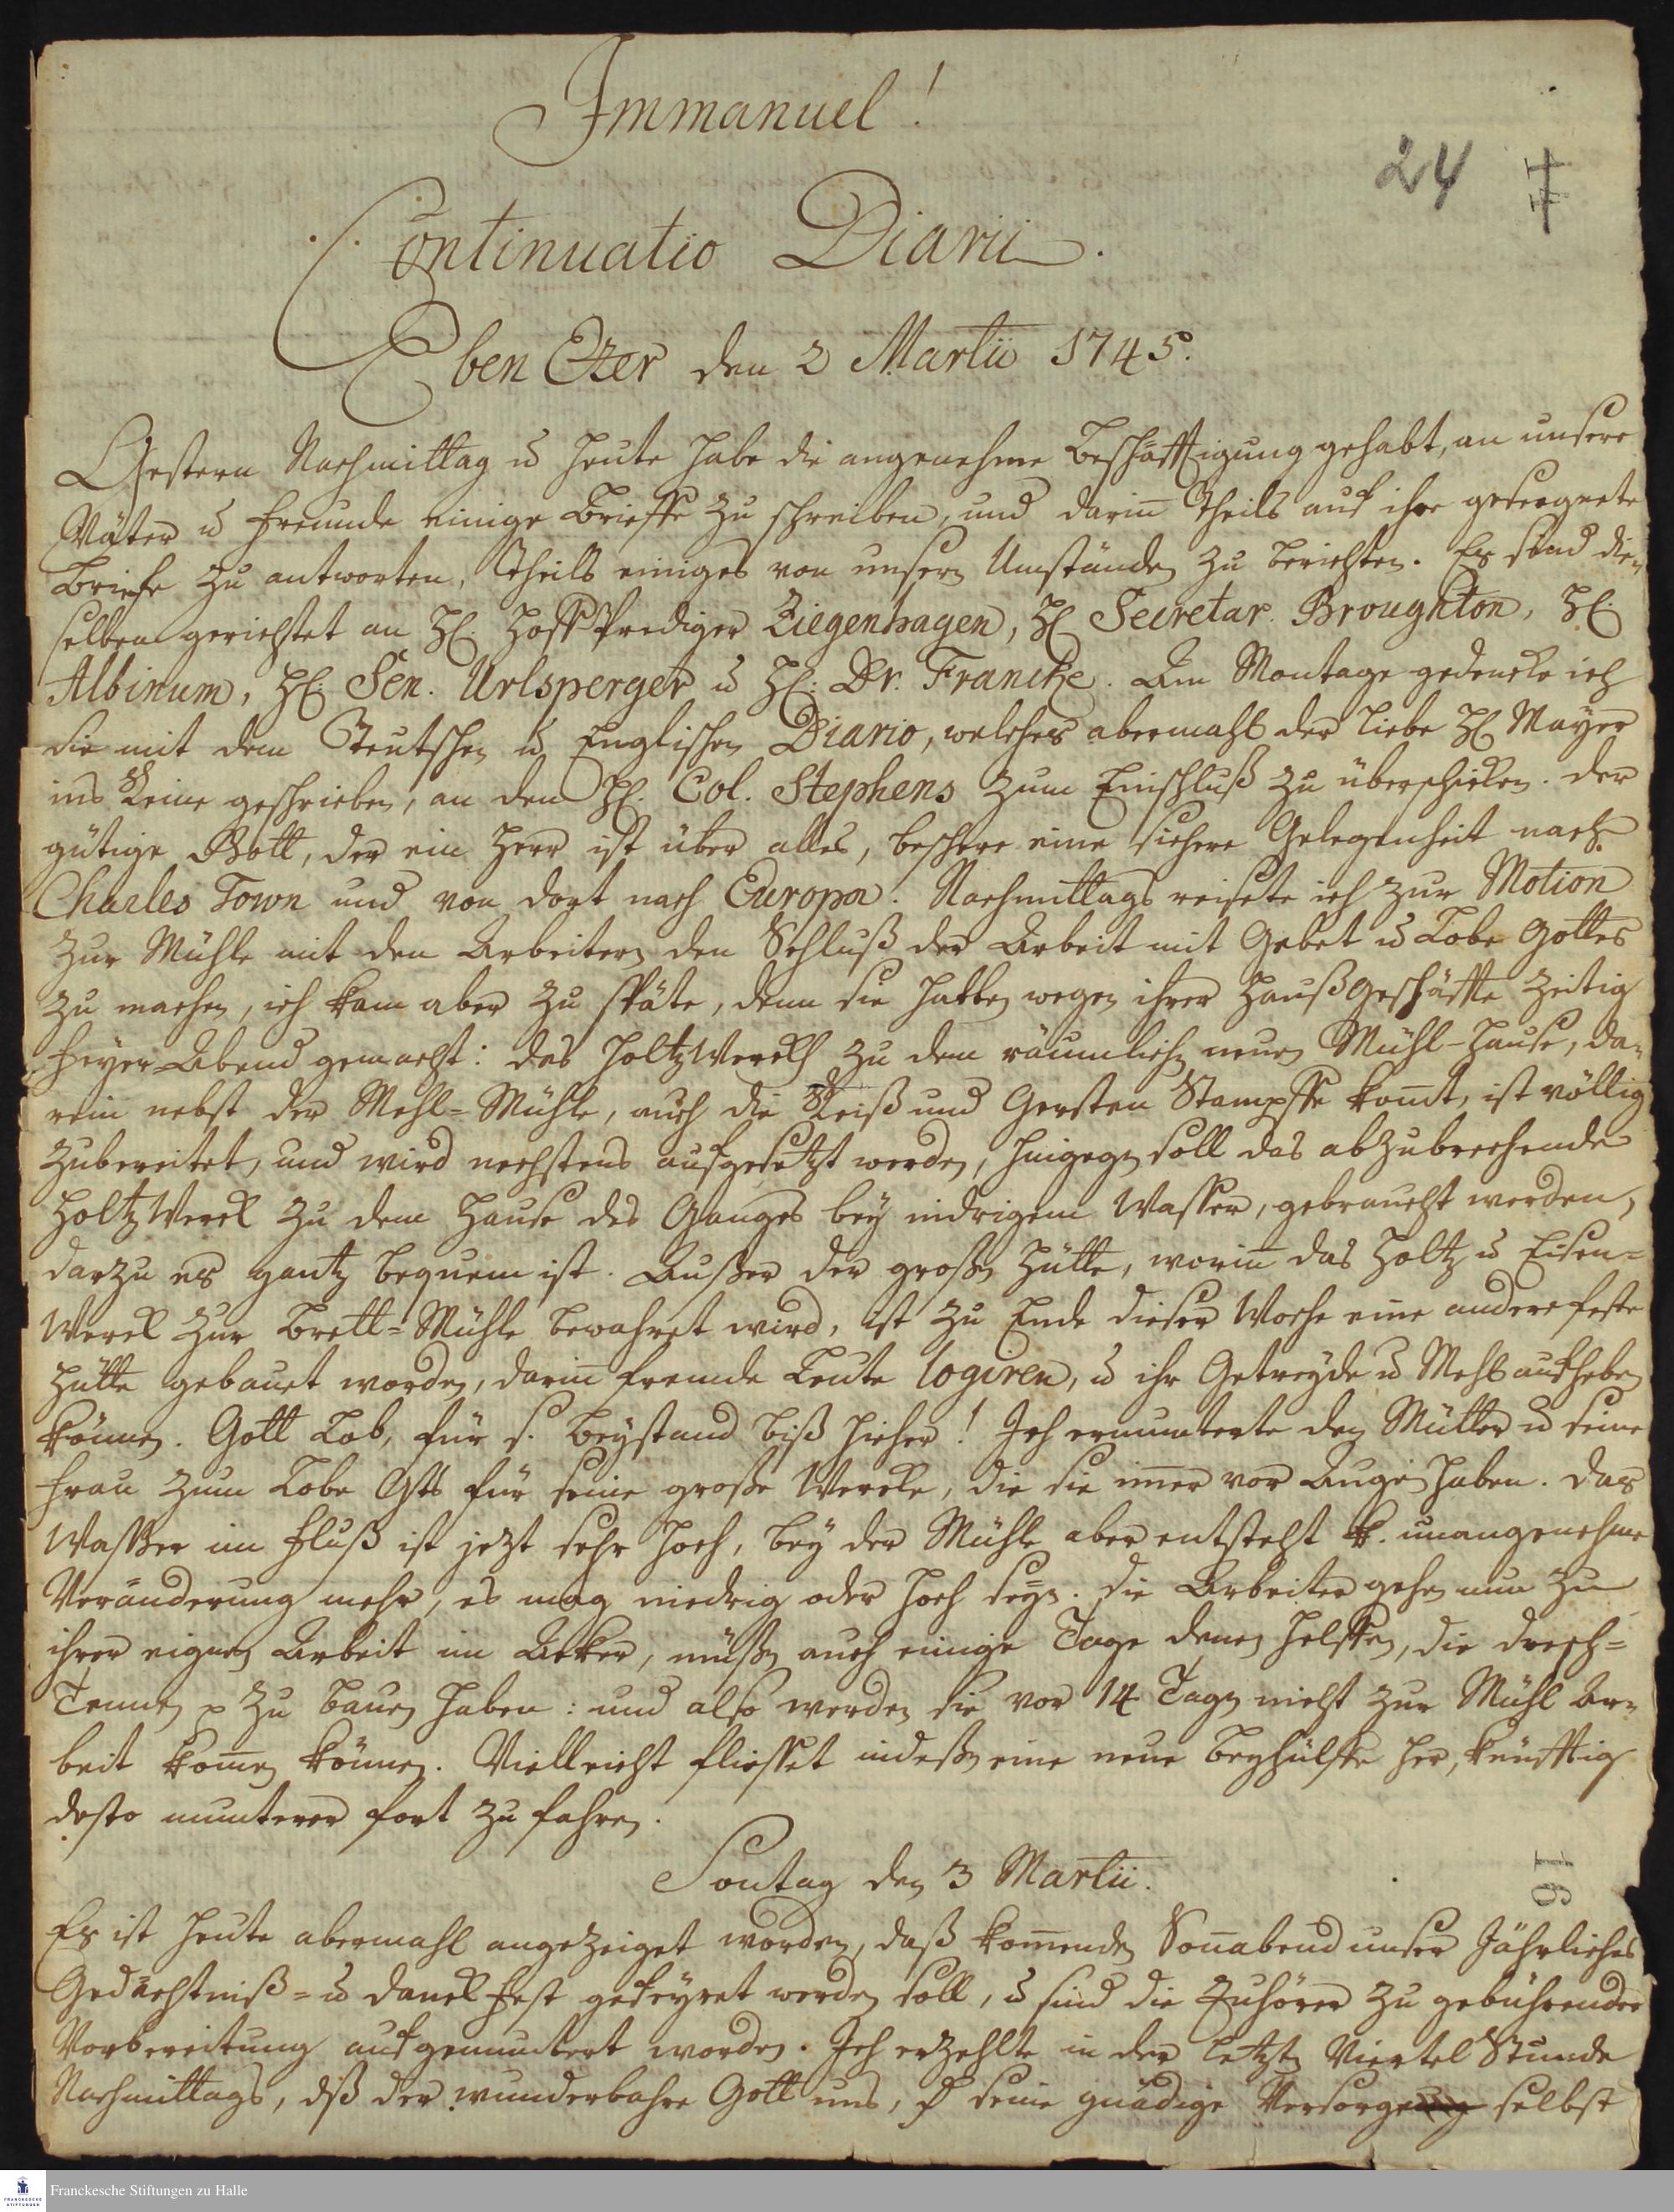 Immanuel!
24
Continuatio Diarii.
Eben Ezer den 2 Martii 1745.
Gestern Nachmittag u heute habe die angenehme Beschäfftigung gehabt, an unsere
Väter u Freunde einige Brieffe zu schreiben, und darin̄ theils auf ihre geseegnete
Briefe zu antworten, theils einiges von unsern Umständen zu berichten. Es sind die-
selben gerichtet an H. HoffPrediger Ziegenhagen, H. Secretar. Broughton, H.
Albinum, H. Sen. Urlsperger u H. Dr. Francke. Am Montage gedencke ich
sie mit dem Teutschen u Englischen Diario, welches abermahl der liebe H. Mayer
ins Reine geschrieben, an den H. Col. Stephens zum Einschluß zu überschicken. Der
gütige Gott, der ein Herr ist über alles, beschere eine sichere Gelegenheit nach
Charles Town und von dort nach Europa. Nachmittags reisete ich zur Motion
zur Mühle mit den Arbeitern den Schluß der Arbeit mit Gebet u Lobe Gottes
zu machen, ich kam aber zu späte, denn sie hatten wegen ihrer Haußgeschäffte zeitig
Feyer-Abend gemacht: das HoltzWerck zu dem räumlichen neuen Mühl-Hause, da-
rein nebst der Mehl-Mühle, auch die Reiß und Gersten Stampffe kom̄t, ist völlig
zubereitet, und wird nechstens aufgesetzt werden, hingegen soll das abzubrechende
HoltzWerck zu dem Hause des Ganges bey nidrigem Wasser, gebraucht werden,
darzu es gantz bequem ist. Außer der großen Hütte, worin̄ das Holtz u Eisen-
Werck zur Brett-Mühle bewahret wird, ist zu Ende dieser Woche eine andere feste
Hütte gebauet worden, darin̄ fremde Leute logiren, u ihr Getreyde u Mehl aufheben
können. Gott Lob, für s. Beystand biß hieher! Ich ermunterte den Müller u seine
Frau zum Lobe Gtts für seine große Wercke, die sie im̄er vor Augen haben. Das
Waßer im Fluß ist jezt sehr hoch, bey der Mühle aber entsteht k. unangenehme
Veränderung mehr, es mag niedrig oder hoch seyn. Die Arbeiter gehen nun zu
ihrer eignen Arbeit im Acker, müßen auch einige Tage denen helffen, die dresch-
Tennen p zu bauen haben: und also werden sie vor 14 Tagen nicht zur Mühl Ar-
beit kom̄en können. Vielleicht fliesset indeßen eine neue Beyhülffe her, künfftig
desto munterer fort zu fahren.
Sontag den 3 Martii.
16
Es ist heute abermahl angezeiget worden, daß kom̄enden Son̄abend unser Jährliches
Gedächtniß- u danckfest gefeyret werden soll, u sind die Zuhörer zu gebührender
Vorbereitung aufgemuntert worden. Ich erzehlte in der letzten Viertel Stunde
Nachmittags, dß der wunderbahre Gott uns, seine gnädige Versorgung selbst
Franckesche Stiftungen zu Halle